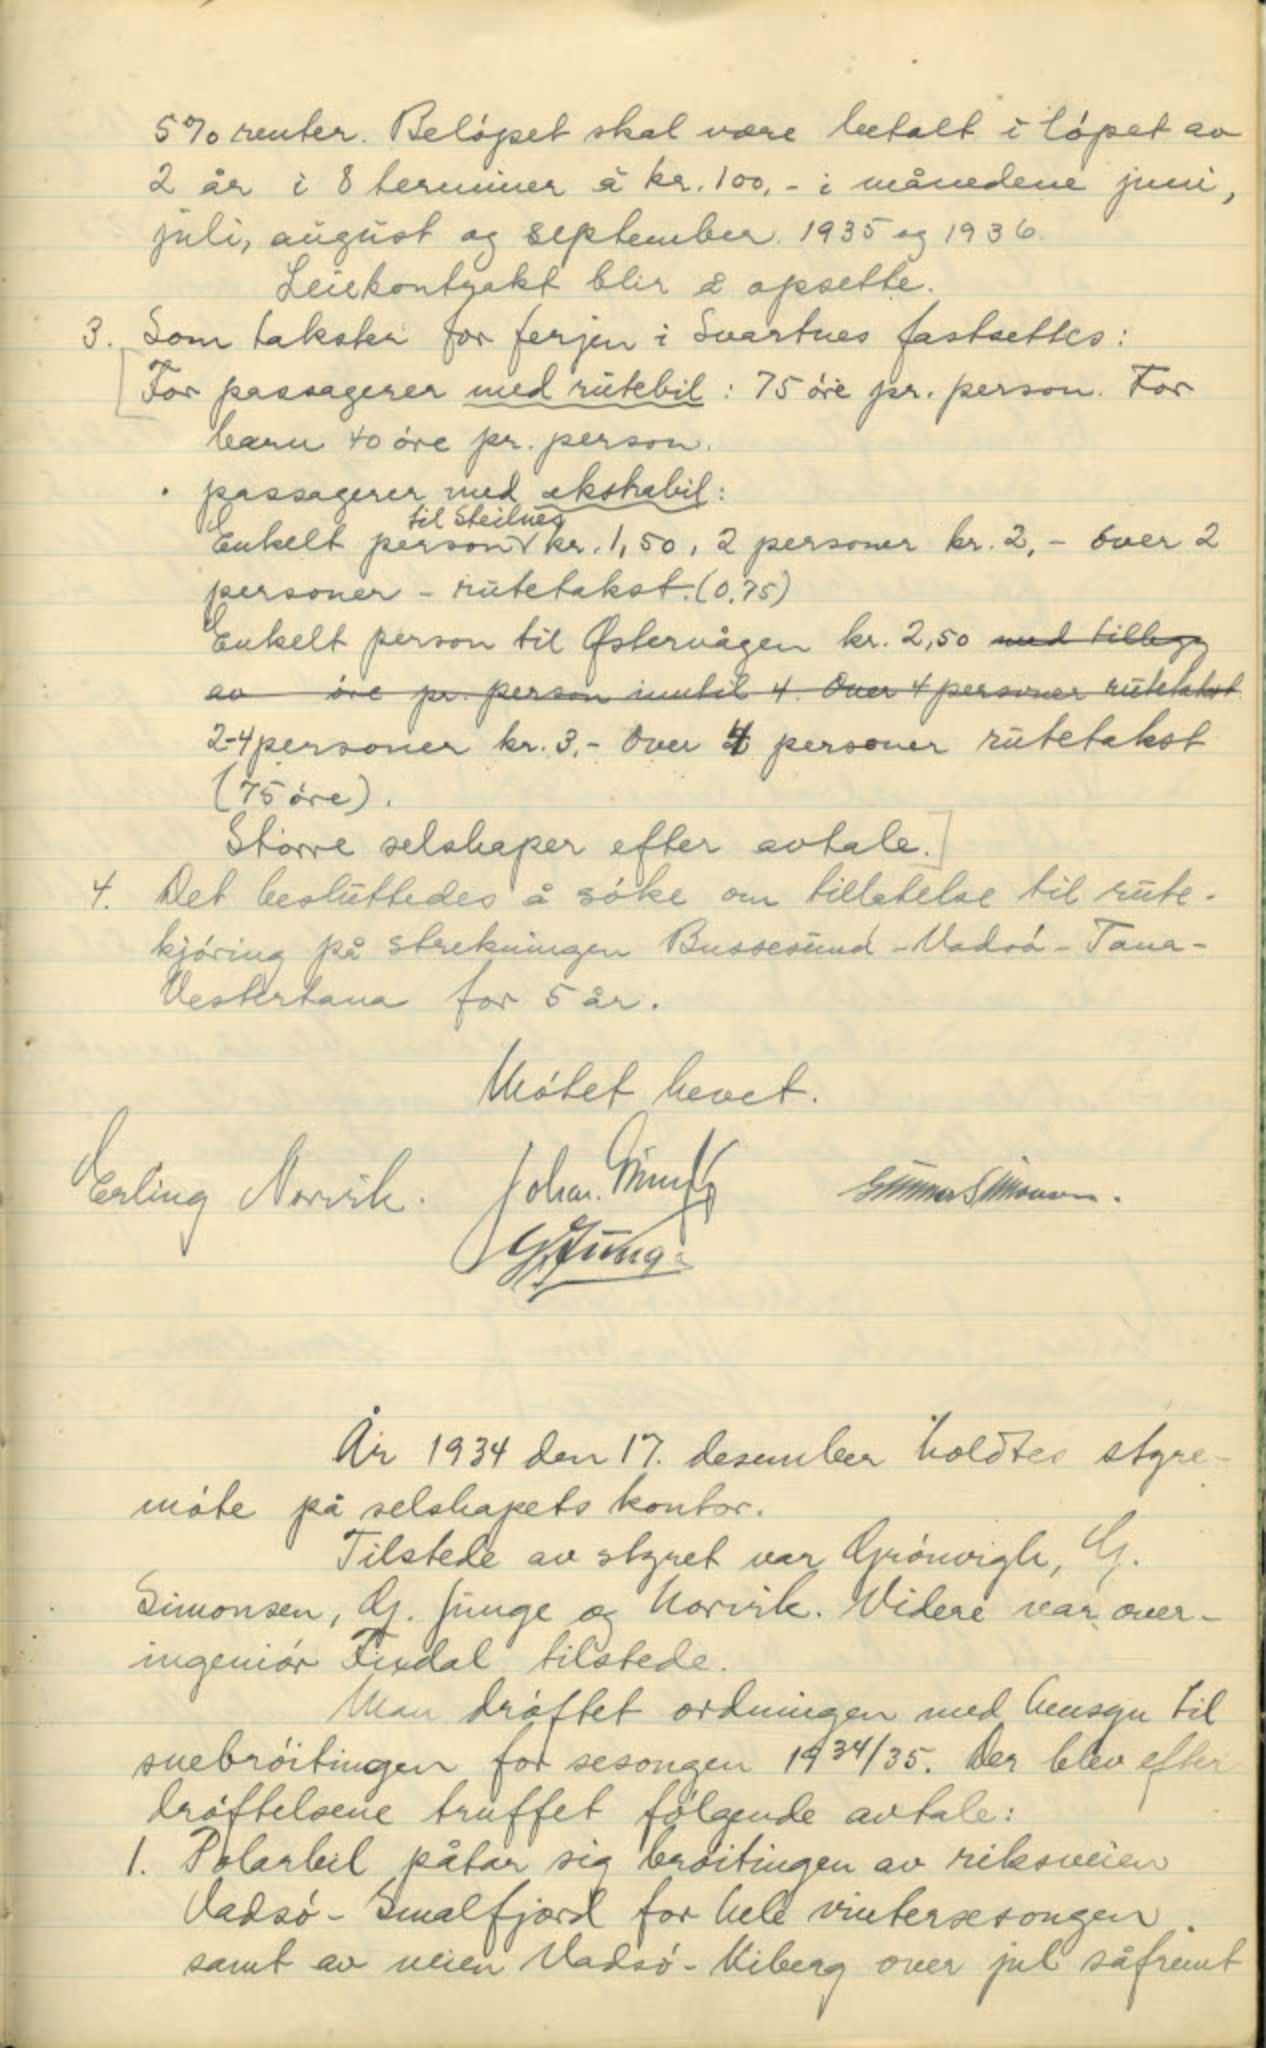 5% renter. Beløpet skal være betalt i løpet av
2 år i 8 terminer á kr. 100,- i månedene juni,
juli, august og september 1935 og 1936.
Leiekontrakt blir å opsette.
3. Som takster for ferjen i Svartnes fastsettes:
[For passagerer med rutebil: 75 øre pr. person. For
barn 40 øre pr. person.
passagerer med ekstrabil:
til Steilnes
Enkelt person kr. 1,50, 2 personer kr. 2,- over 2
personer - rutetakst. (0.75)
Enkelt person til Østervågen kr. 2,50 med tillegg
av øre pr. person inntil 4. Over 4 personer rutetakst
2-4 personer kr. 3,- Over 4 personer rutetakst
(75 øre).
Större selskaper efter avtale.]
4. Det besluttedes å söke om tillatelse til rute-
kjöring på strekningen Bussesund - Vadsö - Tana -
Vestertana for 5 år.
Mötet hevet.
Erling Norvik. Johan Gunnar Simonsen.
G. Junge
År 1934 den 17. desember holdtes styre-
möte på selskapets kontor.
Tilstede av styret var Grönvigh, G.
Simonsen, G. Junge og Norvik. Videre var over-
ingeniör Fixdal tilstede.
Man dröftet ordningen med hensyn til
snebröitingen for sesongen 1934/35. Der blev efter
dröftelsene truffet fölgende avtale:
1. Polarbil påtar sig bröitingen av riksveien
Vadsö - Smalfjord for hele vintersesongen.
samt av veien Vadsö - Kiberg over jul såfremt